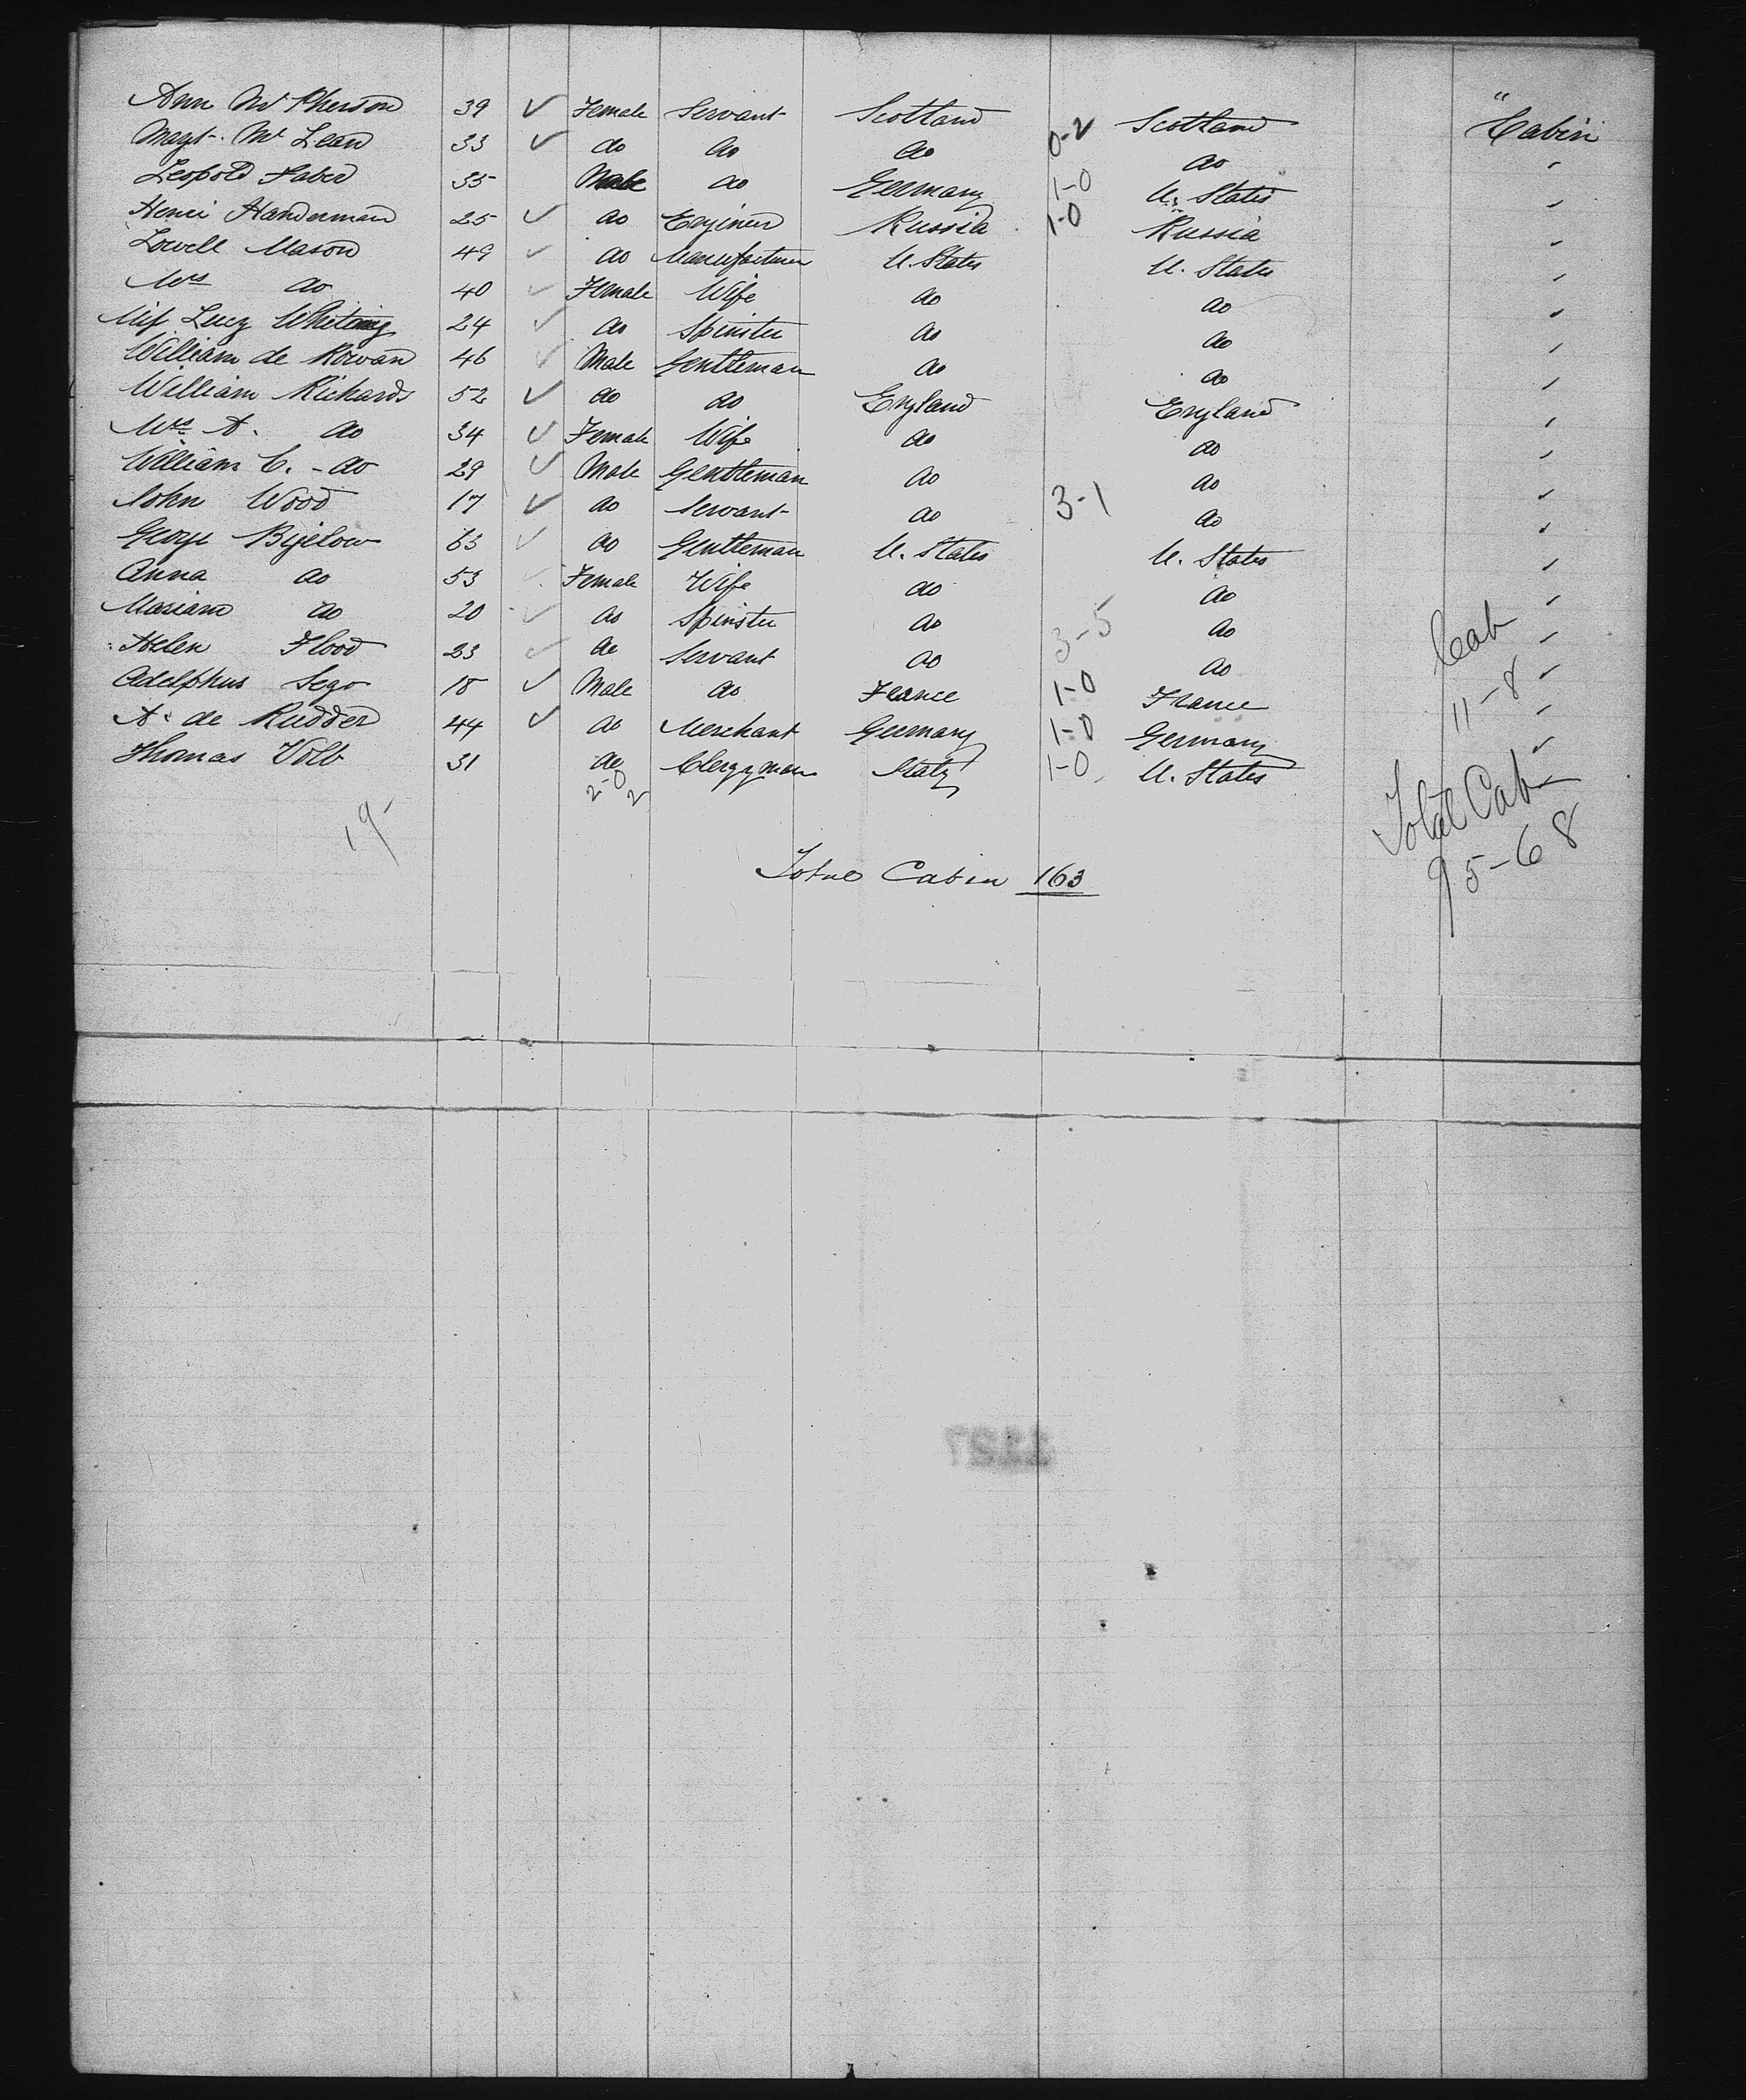 Ann McPherson 39 ✓ Female Servant Scotland 0-2 Scotland " Cabin
Magt. Mc Lean 33 ✓ do do do do "
Leopold Faber 35 Male do Germany 1-0 U. States "
Henri Handerman 25 ✓ do Engineer Russia 1-0 Russia "
Lowell Mason 49 ✓ do Manufacturer U. States U. States "
Mrs do 40 ✓ Female Wife do do "
Miss Lucy Whiting 24 ✓ do Spinster do do "
William de Rowan 46 ✓ Male Gentleman do do "
William Richards 52 ✓ do do England England "
Mrs A. do 34 ✓ Female Wife do do "
William C. - do 29 ✓ Male Gentleman do do "
John Wood 17 ✓ do Servant do 3-1 do "
George Bigelow 63 ✓ do Gentleman U. States U. States "
Anna do 53 ✓ Female Wife do do "
Mariam do 20 ✓ do Spinster do 3-5 do "
Helen Flood 23 ✓ do Servant do do "
Adelphus Sego 18 ✓ Male do France 1-0 France "
A. de Rudder 44 ✓ do Merchant Germany 1-0 Germany "
Thomas Volb 31 do Clergyman Italy 1-0 U. States "
Cab
11-8
2-0
2
19
Total Cab
95-68
Total Cabin 163